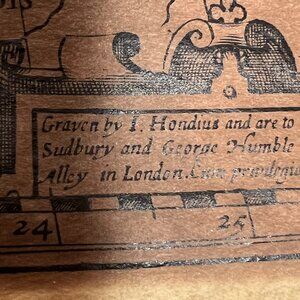 Graven by I. Hondius and are to
Sudbury and George Humble
Alley in London. Cum
24 25